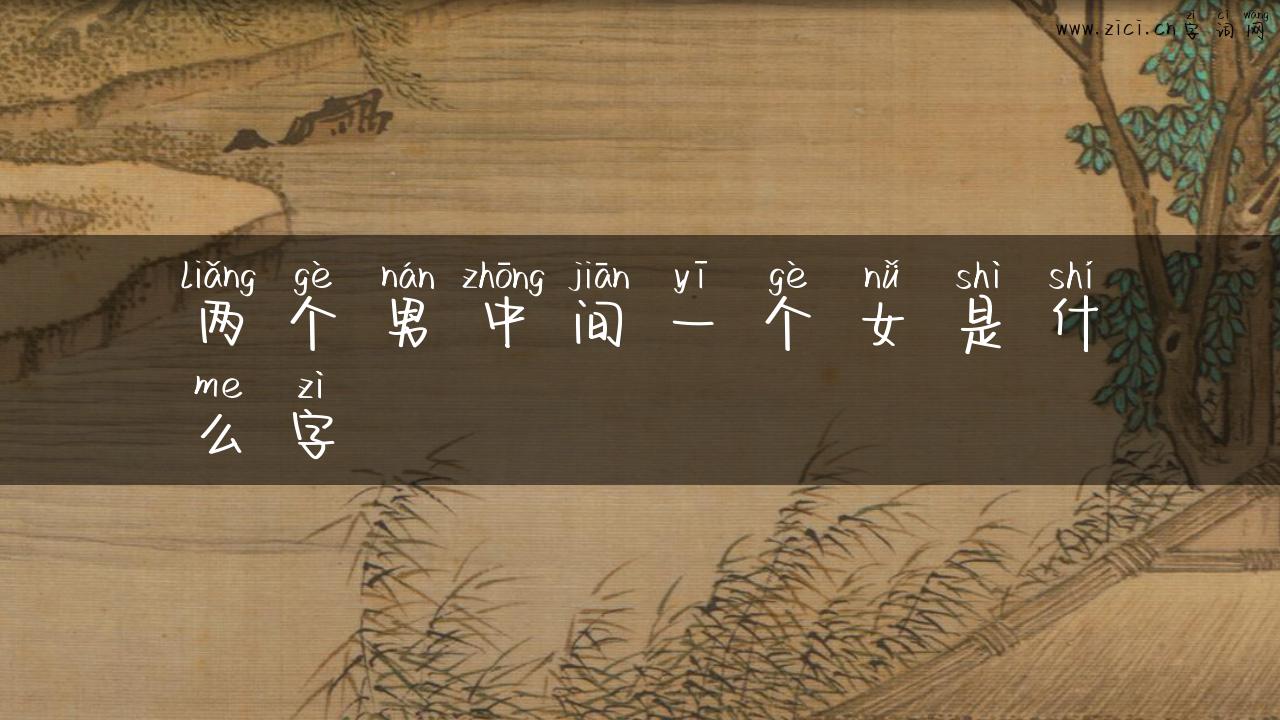 zì cí wǎng
www.zici.cn字词网
liǎng gè nán zhōng jiān yī gè nǚ shì shí
两个男中间一个女是什
me zì
么字